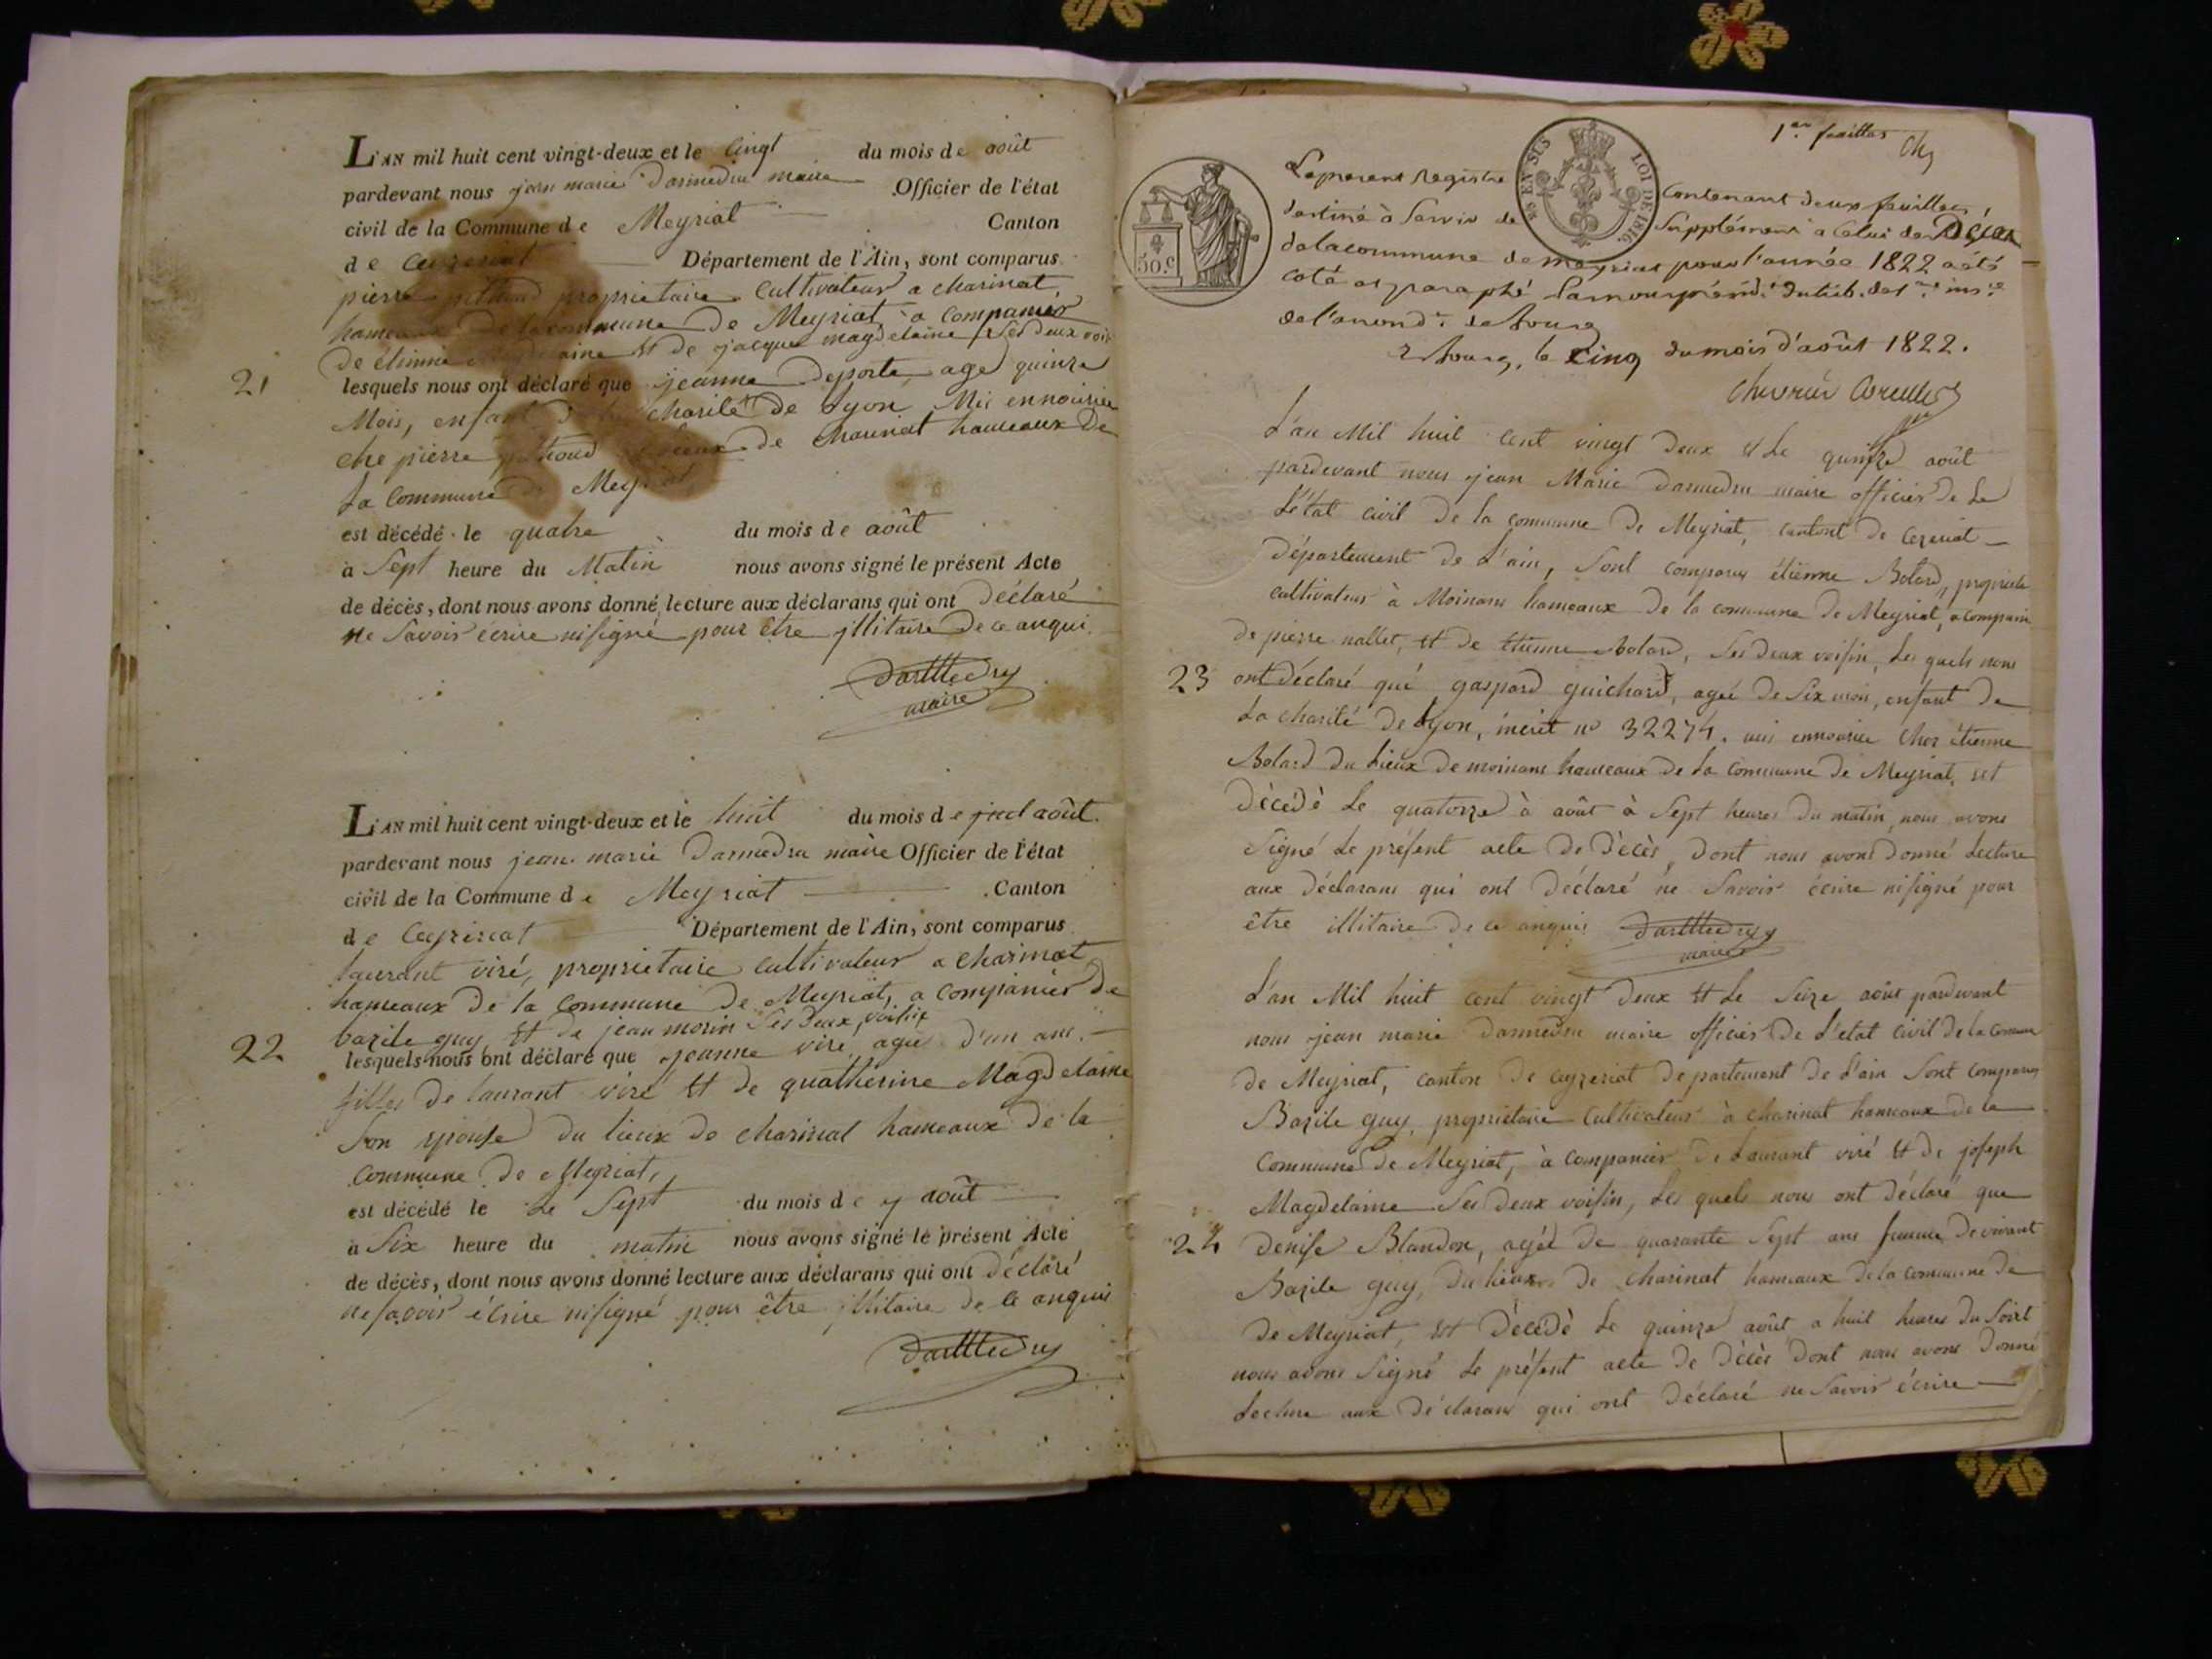 L'AN mil huit cent vingt-deux et le cinqt du mois de août
pardevant nous jean marie darmedru maire Officier de l'état
civil de la Commune de Meyriat Canton
de Ceyzeriat Département de l'Ain, sont comparus
pierre proprietaire cultivateur a charinat
hameaux de la commune de Meyriat, a companier
de étienne magdelaine et de jacque magdelaine ses deux voi
21
lesquels nous ont déclaré que jeanne deporte, age quinze
Mois, enfant de la charité de Lyon Mis ennourice
che pierre lieux de charinat hameaux De
La Commune de Meyriat
est décédé le quatre du mois de août
à Sept heure du Matin nous avons signé le présent Acte
de décès, dont nous avons donné lecture aux déclarans qui ont déclaré
ne savoir écrire nisigné pour être illitaire de ce anqui
darmedru
maire
L'AN mil huit cent vingt-deux et le huit du mois de août
pardevant nous jean marie darmedru maire Officier de l'état
civil de la Commune de Meyriat Canton
de Ceyzeriat Département de l'Ain, sont comparus
laurant viré, proprietaire cultivateur a charinat
hameaux de la commune de Meyriat, a companier de
bazile guy et de jean morin ses deux voisin
22
lesquels nous ont déclaré que jeanne viré agée d'un ans
filles de laurant viré et de quatherine Magdelaine
son epouse du lieux de charinat hameaux de la
commune de Meyriat,
est décédé le Le Sept du mois de août
à Six heure du matin nous avons signé le présent Acte
de décès, dont nous avons donné lecture aux déclarans qui ont déclaré
ne savoir écrire nisigné pour être illitaire de ce anqui
darmedru
1er feuillet
Le present Registre contenant deux feuillets,
destiné à Servir de Supplément à celui des Décès
de la commune de Meyriat pour l'année 1822 a été
coté et paraphé par nous présid.t du trib.
de l'arrond.t de Bourg
à Bourg, le Cinq du mois d'août 1822.
50.c
EN SUS
LOI DE 1816.
L'an Mil huit cent vingt deux et Le quinze août
pardevant nous jean Marie darmedru maire officier de Le
L'état civil de la commune de Meyriat, cantont de cezeriat
Département de L'ain, sont comparus étienne Bolard, propriete
cultivateur à Moinans hameaux de la commune de Meyriat, a compani
de pierre nallet, et de étienne bolard, ses deux voisin, Les quels nous
23
ont déclaré que gaspard guichard, ageé de six mois, enfant de
La charité de Lyon, inscrit no 32274. mis ennourice chez étienne
Bolard du Lieux de moinans hameaux de la commune de Meyriat, est
décédé Le quatorze à août à Sept heures du matin, nous avons
Signé Le présent acte de décès, dont nous avons donné Lecture
aux déclarans qui ont déclaré ne savoir écrire nisigné pour
être illitaire de ce anqui darmedru
maire
L'an Mil huit cent vingt deux et Le Seize août pardevant
nous jean marie darmedru maire officier de L'etat civil de la commune
de Meyriat, canton de ceyzeriat departement de L'ain Sont comparus
Bazile guy, proprietaire cultivateur à charinat hameaux de la
commune de Meyriat, à companier de Laurant viré et de joseph
Magdelaine ses deux voisin, Les quels nous ont déclaré que
24
denise Blandon, agéé de quarante Sept ans femme de vivant
Bazile guy, du lieux de charinat hameaux de la commune de
de Meyriat, est décédé Le quinze août a huit heures du soirt
nous avons Signé Le présent acte de décès dont nous avons donné
Lecture aux déclarans qui ont déclaré ne savoir écrire